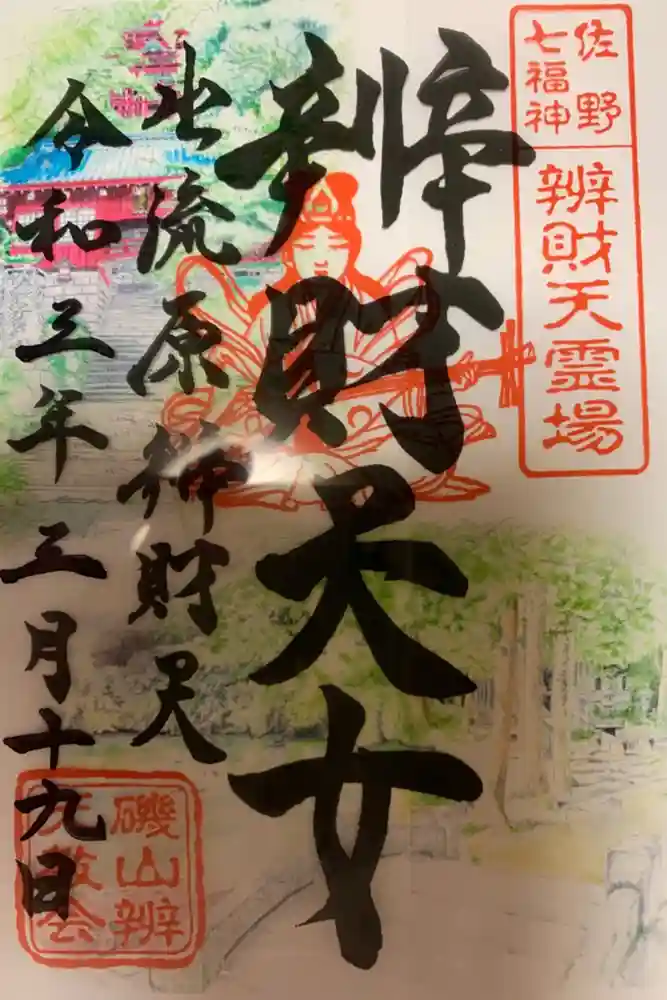 佐野
七福神
辨財天霊場
辨財天女
出流原辨財天
令和三年三月十九日
磯山辨